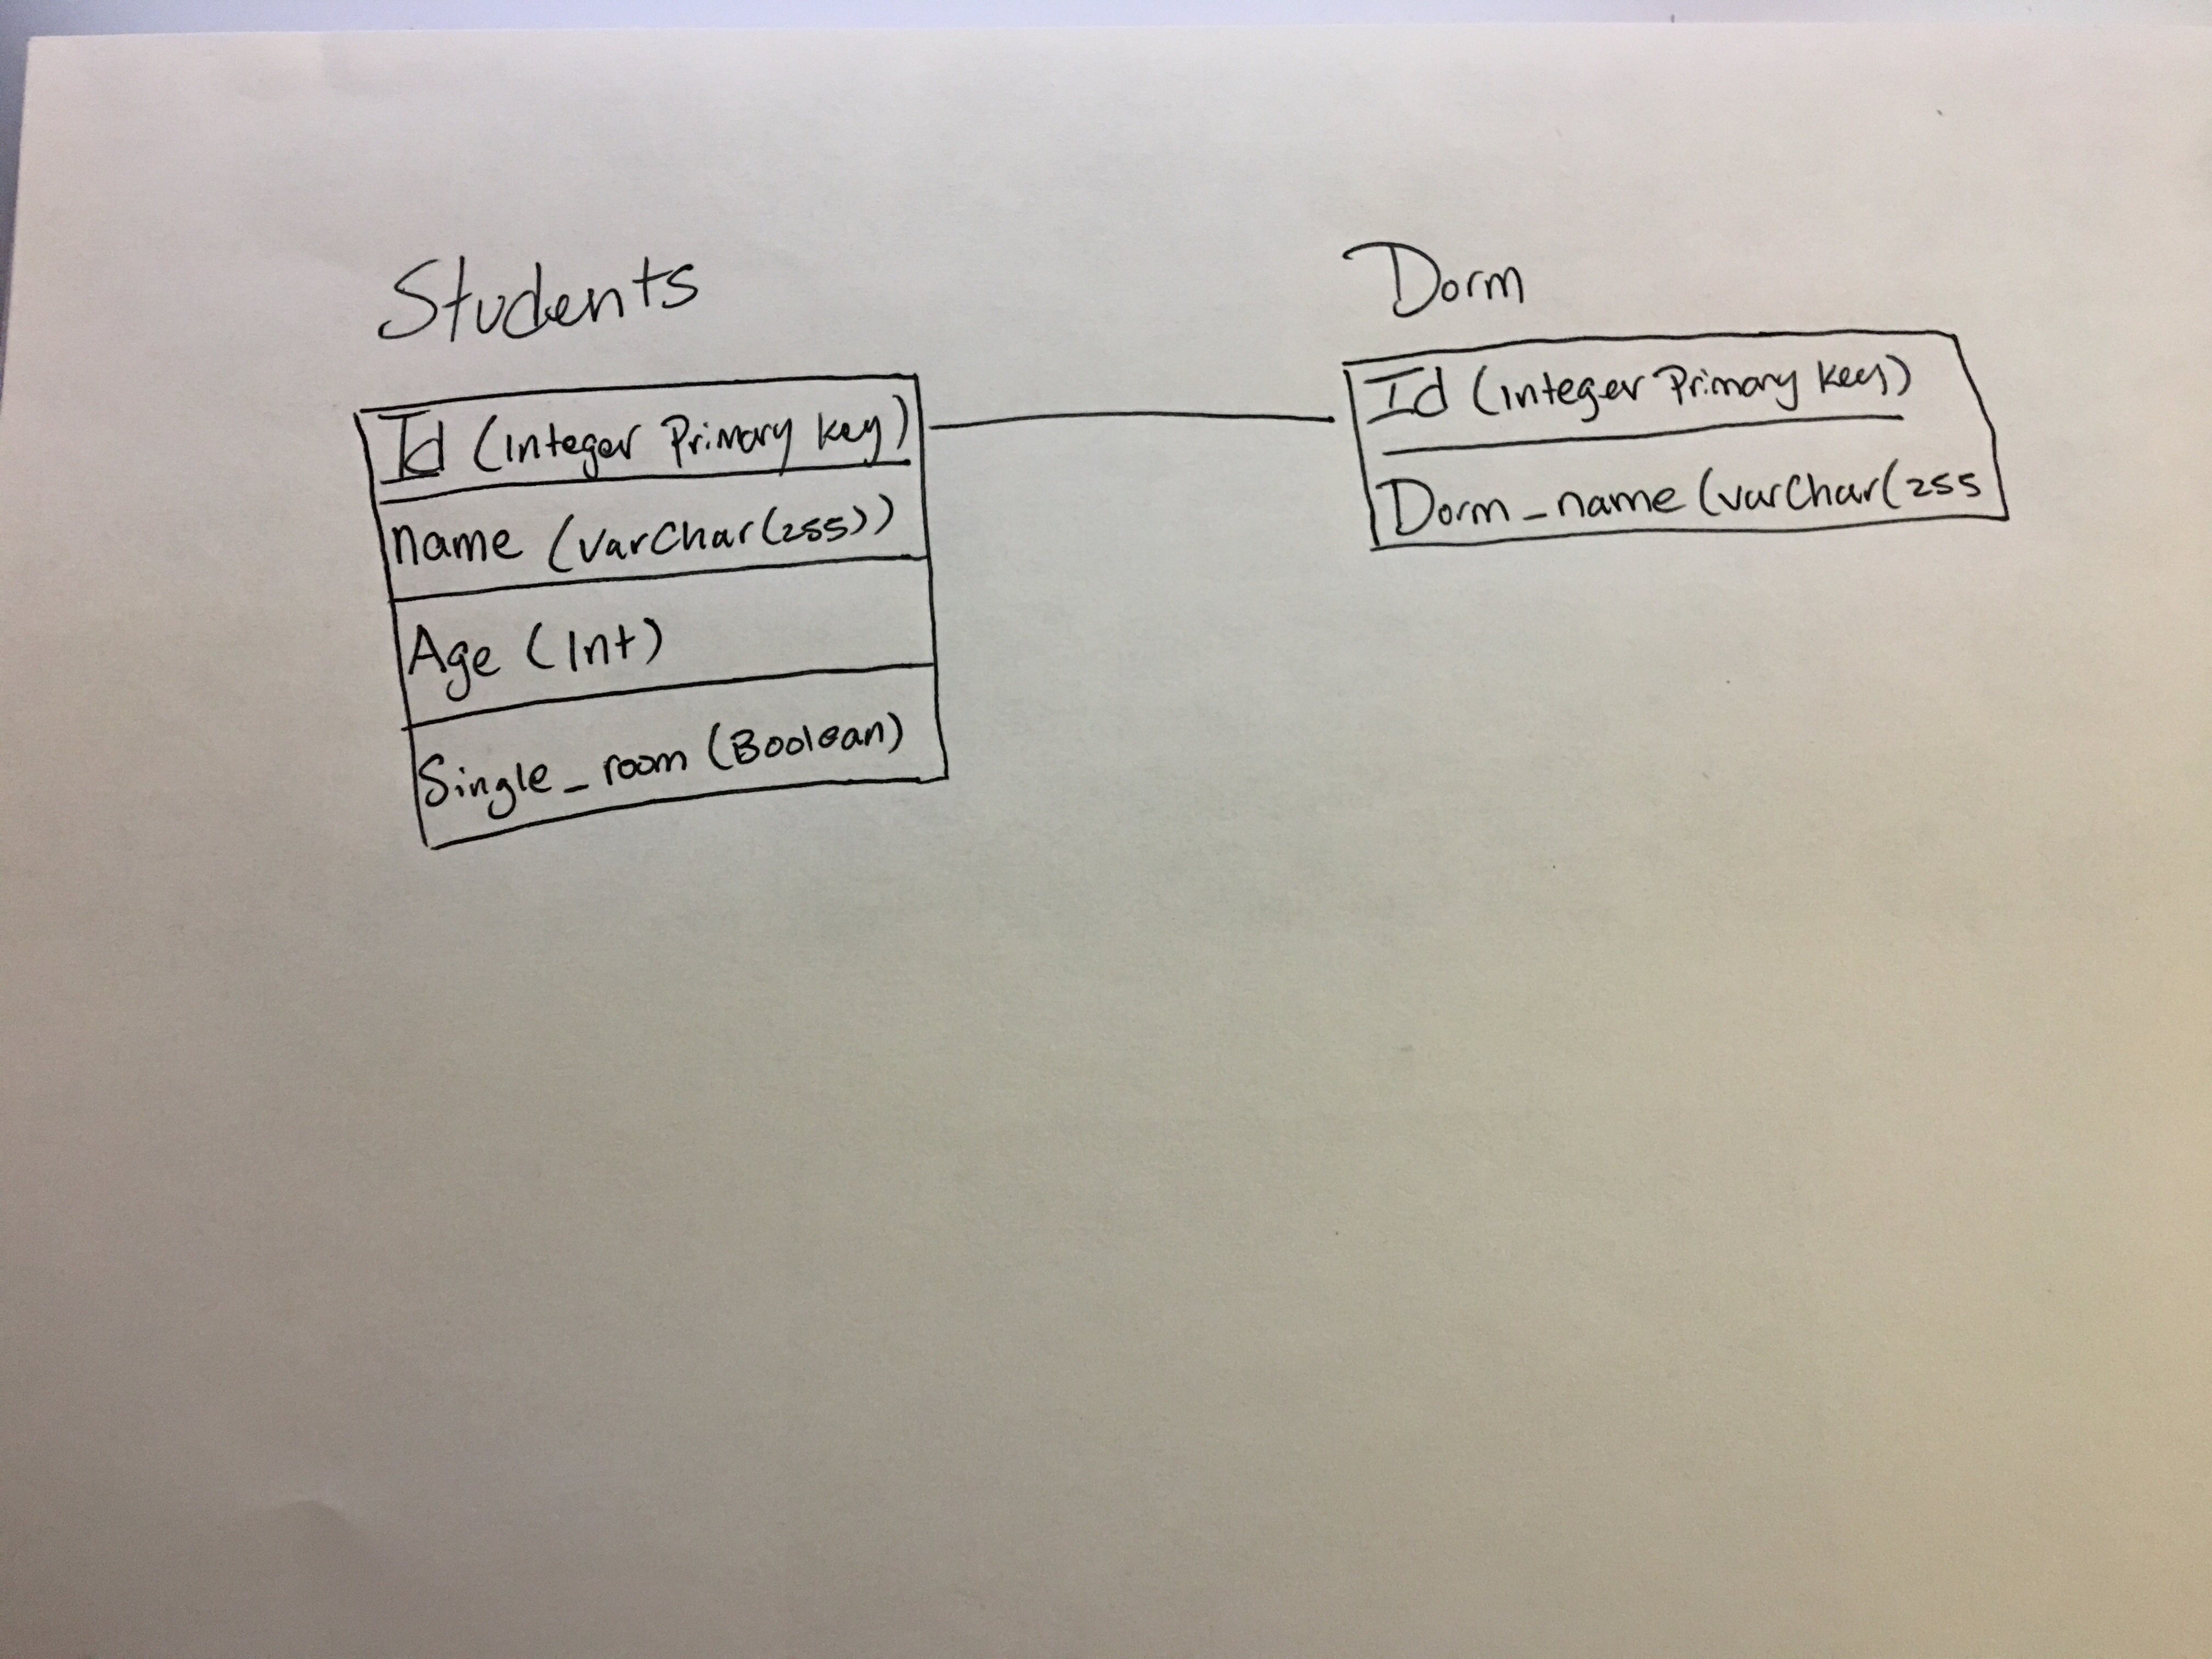 Students
Id (Integer Primary key)
name (varchar(255))
Age (Int)
Single_room (Boolean)
Dorm
Id (Integer Primary key)
Dorm_name (varchar(255